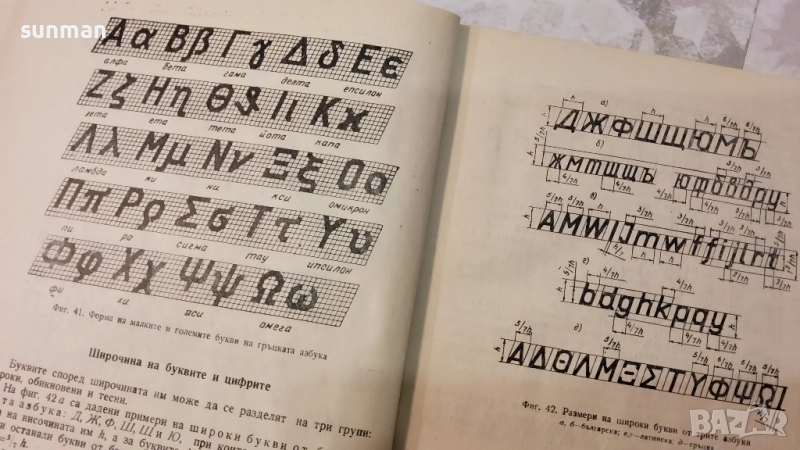 sunman
Αα Ββ Γγ Δδ Εε
алфа бета гама делта епсилон
Ζζ Ηη Θϑ Ιι Κκ
зета ета тета йота капа
Λλ Μμ Νν Ξξ Οο
ламбда ми ни кси омикрон
Ππ Ρρ Σσ Ττ Υυ
пи ро сигма тау ипсилон
Φφ Χχ Ψψ Ωω
фи хи пси омега
Фиг. 41. Форма на малките и големите букви на гръцката азбука
Широчина на буквите и цифрите
Буквите според широчината им може да се разделят на три групи:
роки, обикновени и тесни.
На фиг. 42 а са дадени примери на широки букви от
та азбука: Д, Ж, Ф, Ш, Щ и Ю, при
на височината им h, а за буквите
и останали букви от
5/7 h.
а)
ДЖФШЩЮМЪ
б)
жмтшщъ юфбвдру
в)
AMWIJmwffijlrt
г)
bdghkpqy
д)
ΑΔΘΛΜΞΣΤΥΦΨΩ
Фиг. 42. Размери на широки букви от трите азбуки
а, б — българска; в, г — латинска; д — гръцка
BAZAR